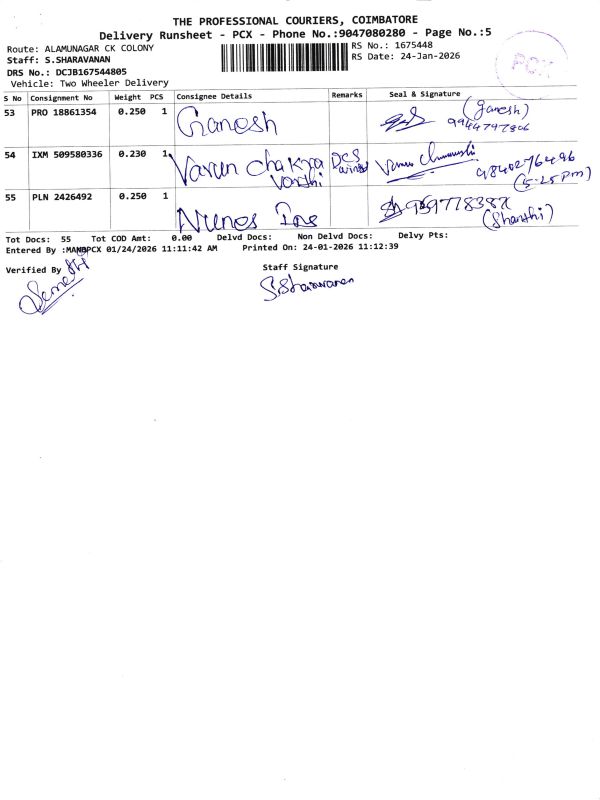 THE PROFESSIONAL COURIERS, COIMBATORE
Delivery Runsheet - PCX - Phone No.:9047080280 - Page No.:5
Route: ALAMUNAGAR CK COLONY
Staff: S.SHARAVANAN
DRS No.: DCJB167544805
Vehicle: Two Wheeler Delivery
RS No.: 1675448
RS Date: 24-Jan-2026
PCX
S No Consignment No Weight PCS Consignee Details Remarks Seal & Signature
53 PRO 18861354 0.250 1 Ganesh (Ganesh)
9944797306
54 IXM 509580336 0.230 1 Varun Chakra
Varthi
9840276496
(5-25 pm)
55 PLN 2426492 0.250 1
(Shanthi)
Tot Docs: 55 Tot COD Amt: 0.00 Delvd Docs: Non Delvd Docs: Delvy Pts:
Entered By :MANBPCX 01/24/2026 11:11:42 AM Printed On: 24-01-2026 11:12:39
Verified By
Staff Signature
S.Sharavanan